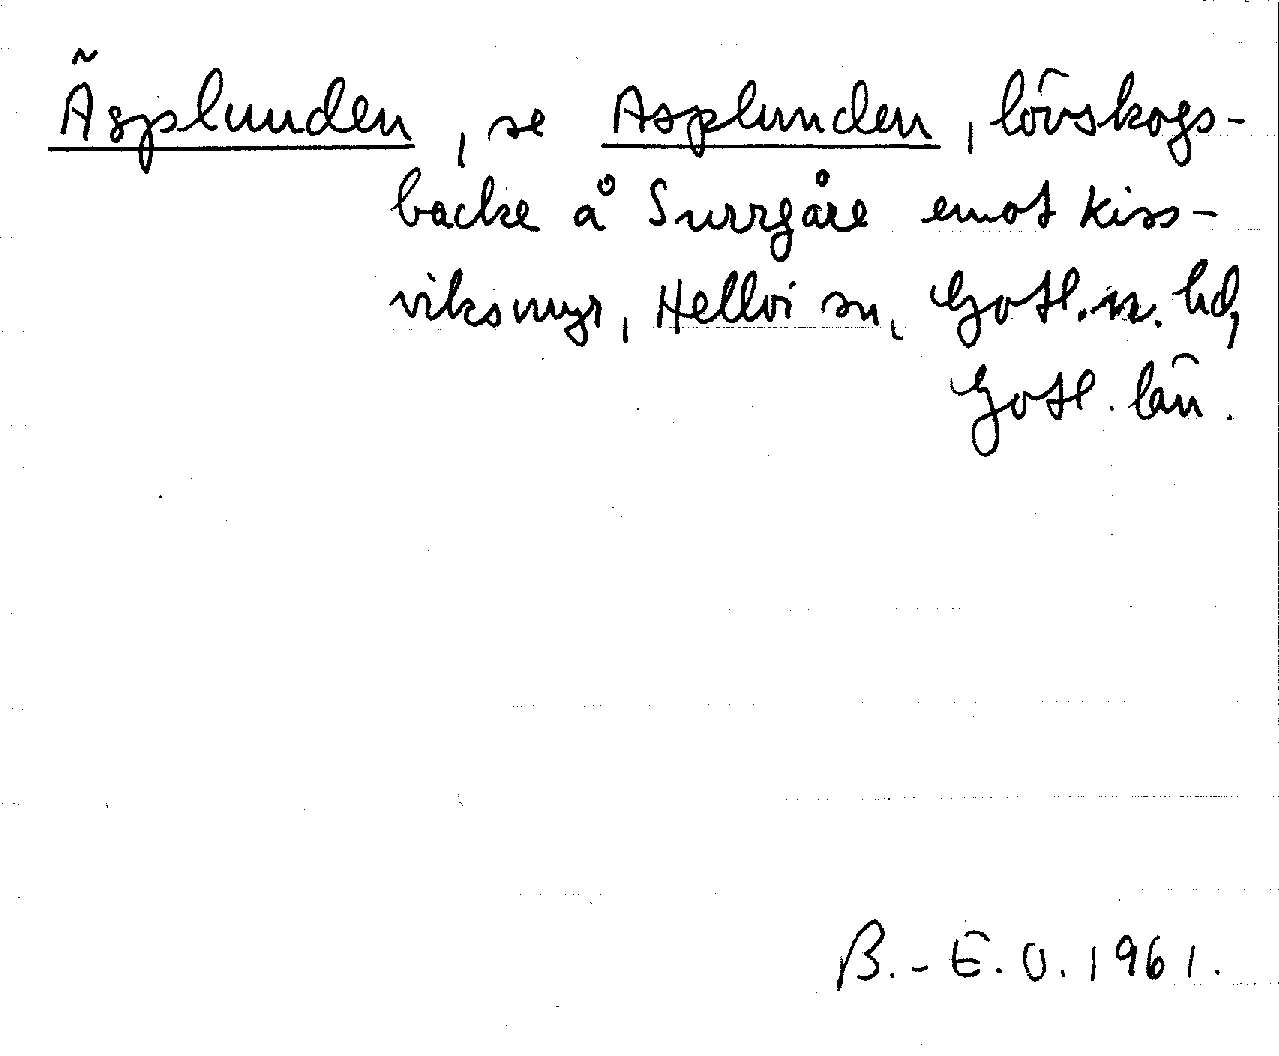 Äsplunden, se Asplunden, lövskogs-
backe å Surrgåre emot Kiss-
viksmyr, Hellvi sn, Gotl. n. hd,
Gotl. län.
B.-E.O. 1961.